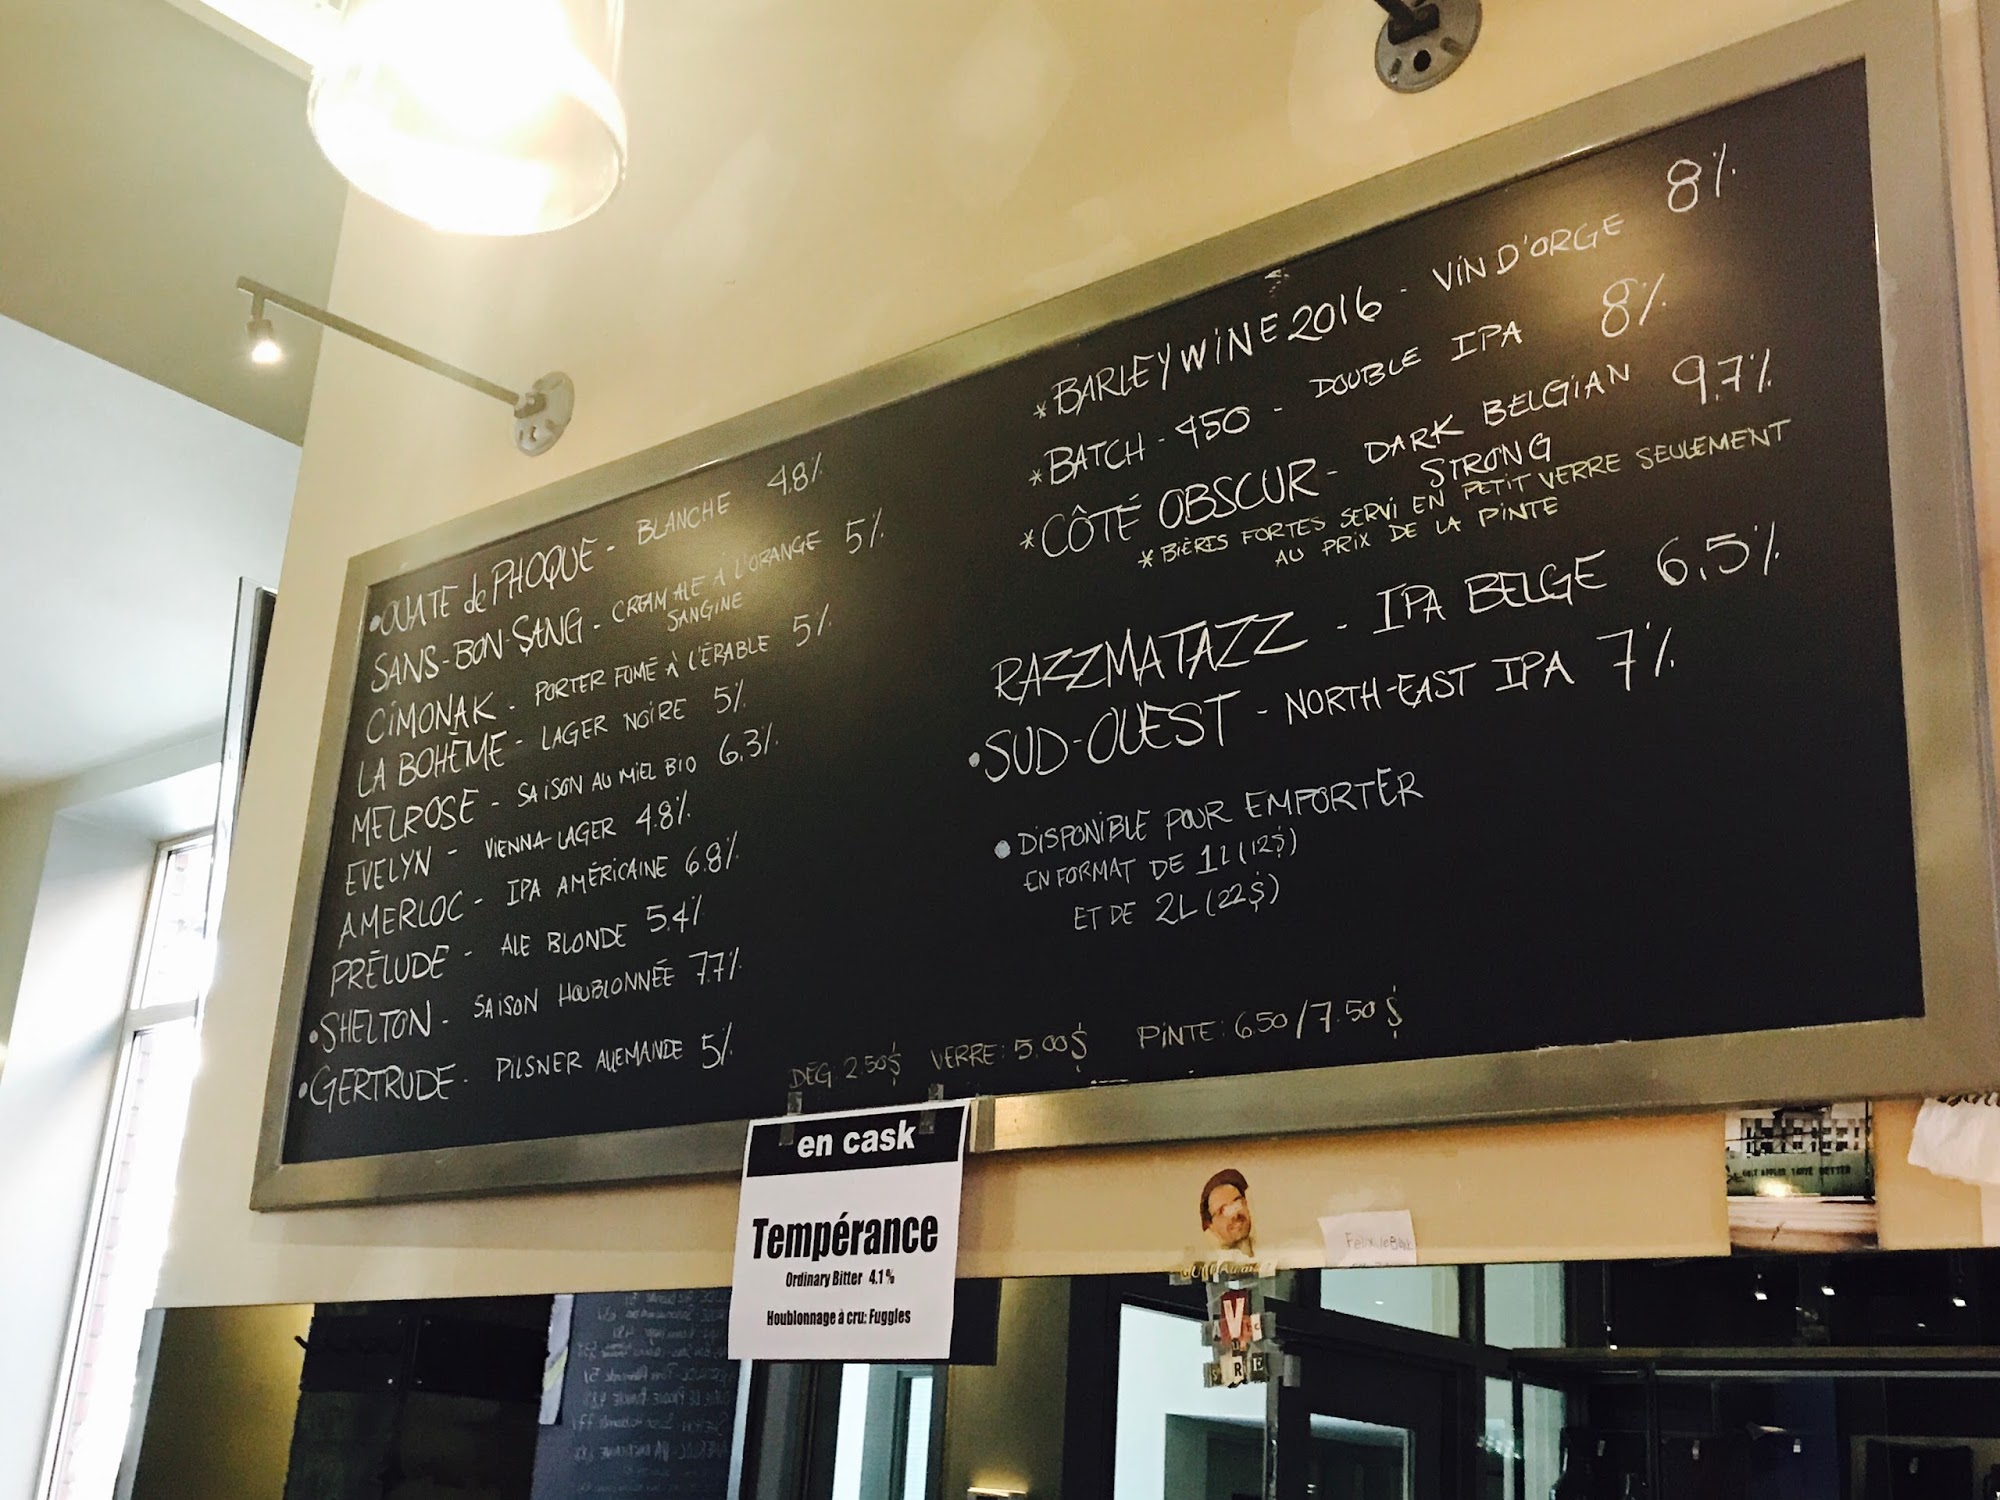 •OUATE de PHOQUE - BLANCHE 4.8%
SANS-BON-SANG - CREAM ALE À L'ORANGE 5%
SANGINE
CIMONAK - PORTER FUMÉ À L'ÉRABLE 5%
LA BOHÊME - LAGER NOIRE 5%
MELROSE - SAISON AU MIEL BIO 6.3%
EVELYN - VIENNA LAGER 4.8%
AMERLOC - IPA AMÉRICAINE 6.8%
PRÉLUDE - ALE BLONDE 5.4%
•SHELTON - SAISON HOUBLONNÉE 7.7%
•GERTRUDE - PILSNER ALLEMANDE 5%
*BARLEYWINE 2016 - VIN D'ORGE 8%
*BATCH - 450 - DOUBLE IPA 8%
*CÔTÉ OBSCUR - DARK BELGIAN 9,7%
STRONG
*BIÈRES FORTES SERVI EN PETIT VERRE SEULEMENT
AU PRIX DE LA PINTE
RAZZMATAZZ - IPA BELGE 6,5%
•SUD-OUEST - NORTH-EAST IPA 7%
• DISPONIBLE POUR EMPORTER
EN FORMAT DE 1L (12$)
ET DE 2L (22$)
DEG: 2.50$ VERRE: 5.00$ PINTE: 6.50/7.50$
en cask
Tempérance
Ordinary Bitter 4.1%
Houblonnage à cru: Fuggles